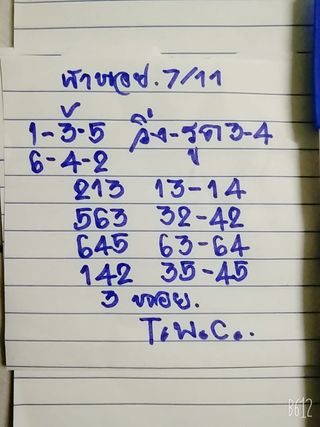 ห้าหอย. 7/11
1-3-5 วิ่ง-รูด 3-4
6-4-2
213 13-14
563 32-42
645 63-64
142 35-45
3 หอย.
T.W.C..
B612